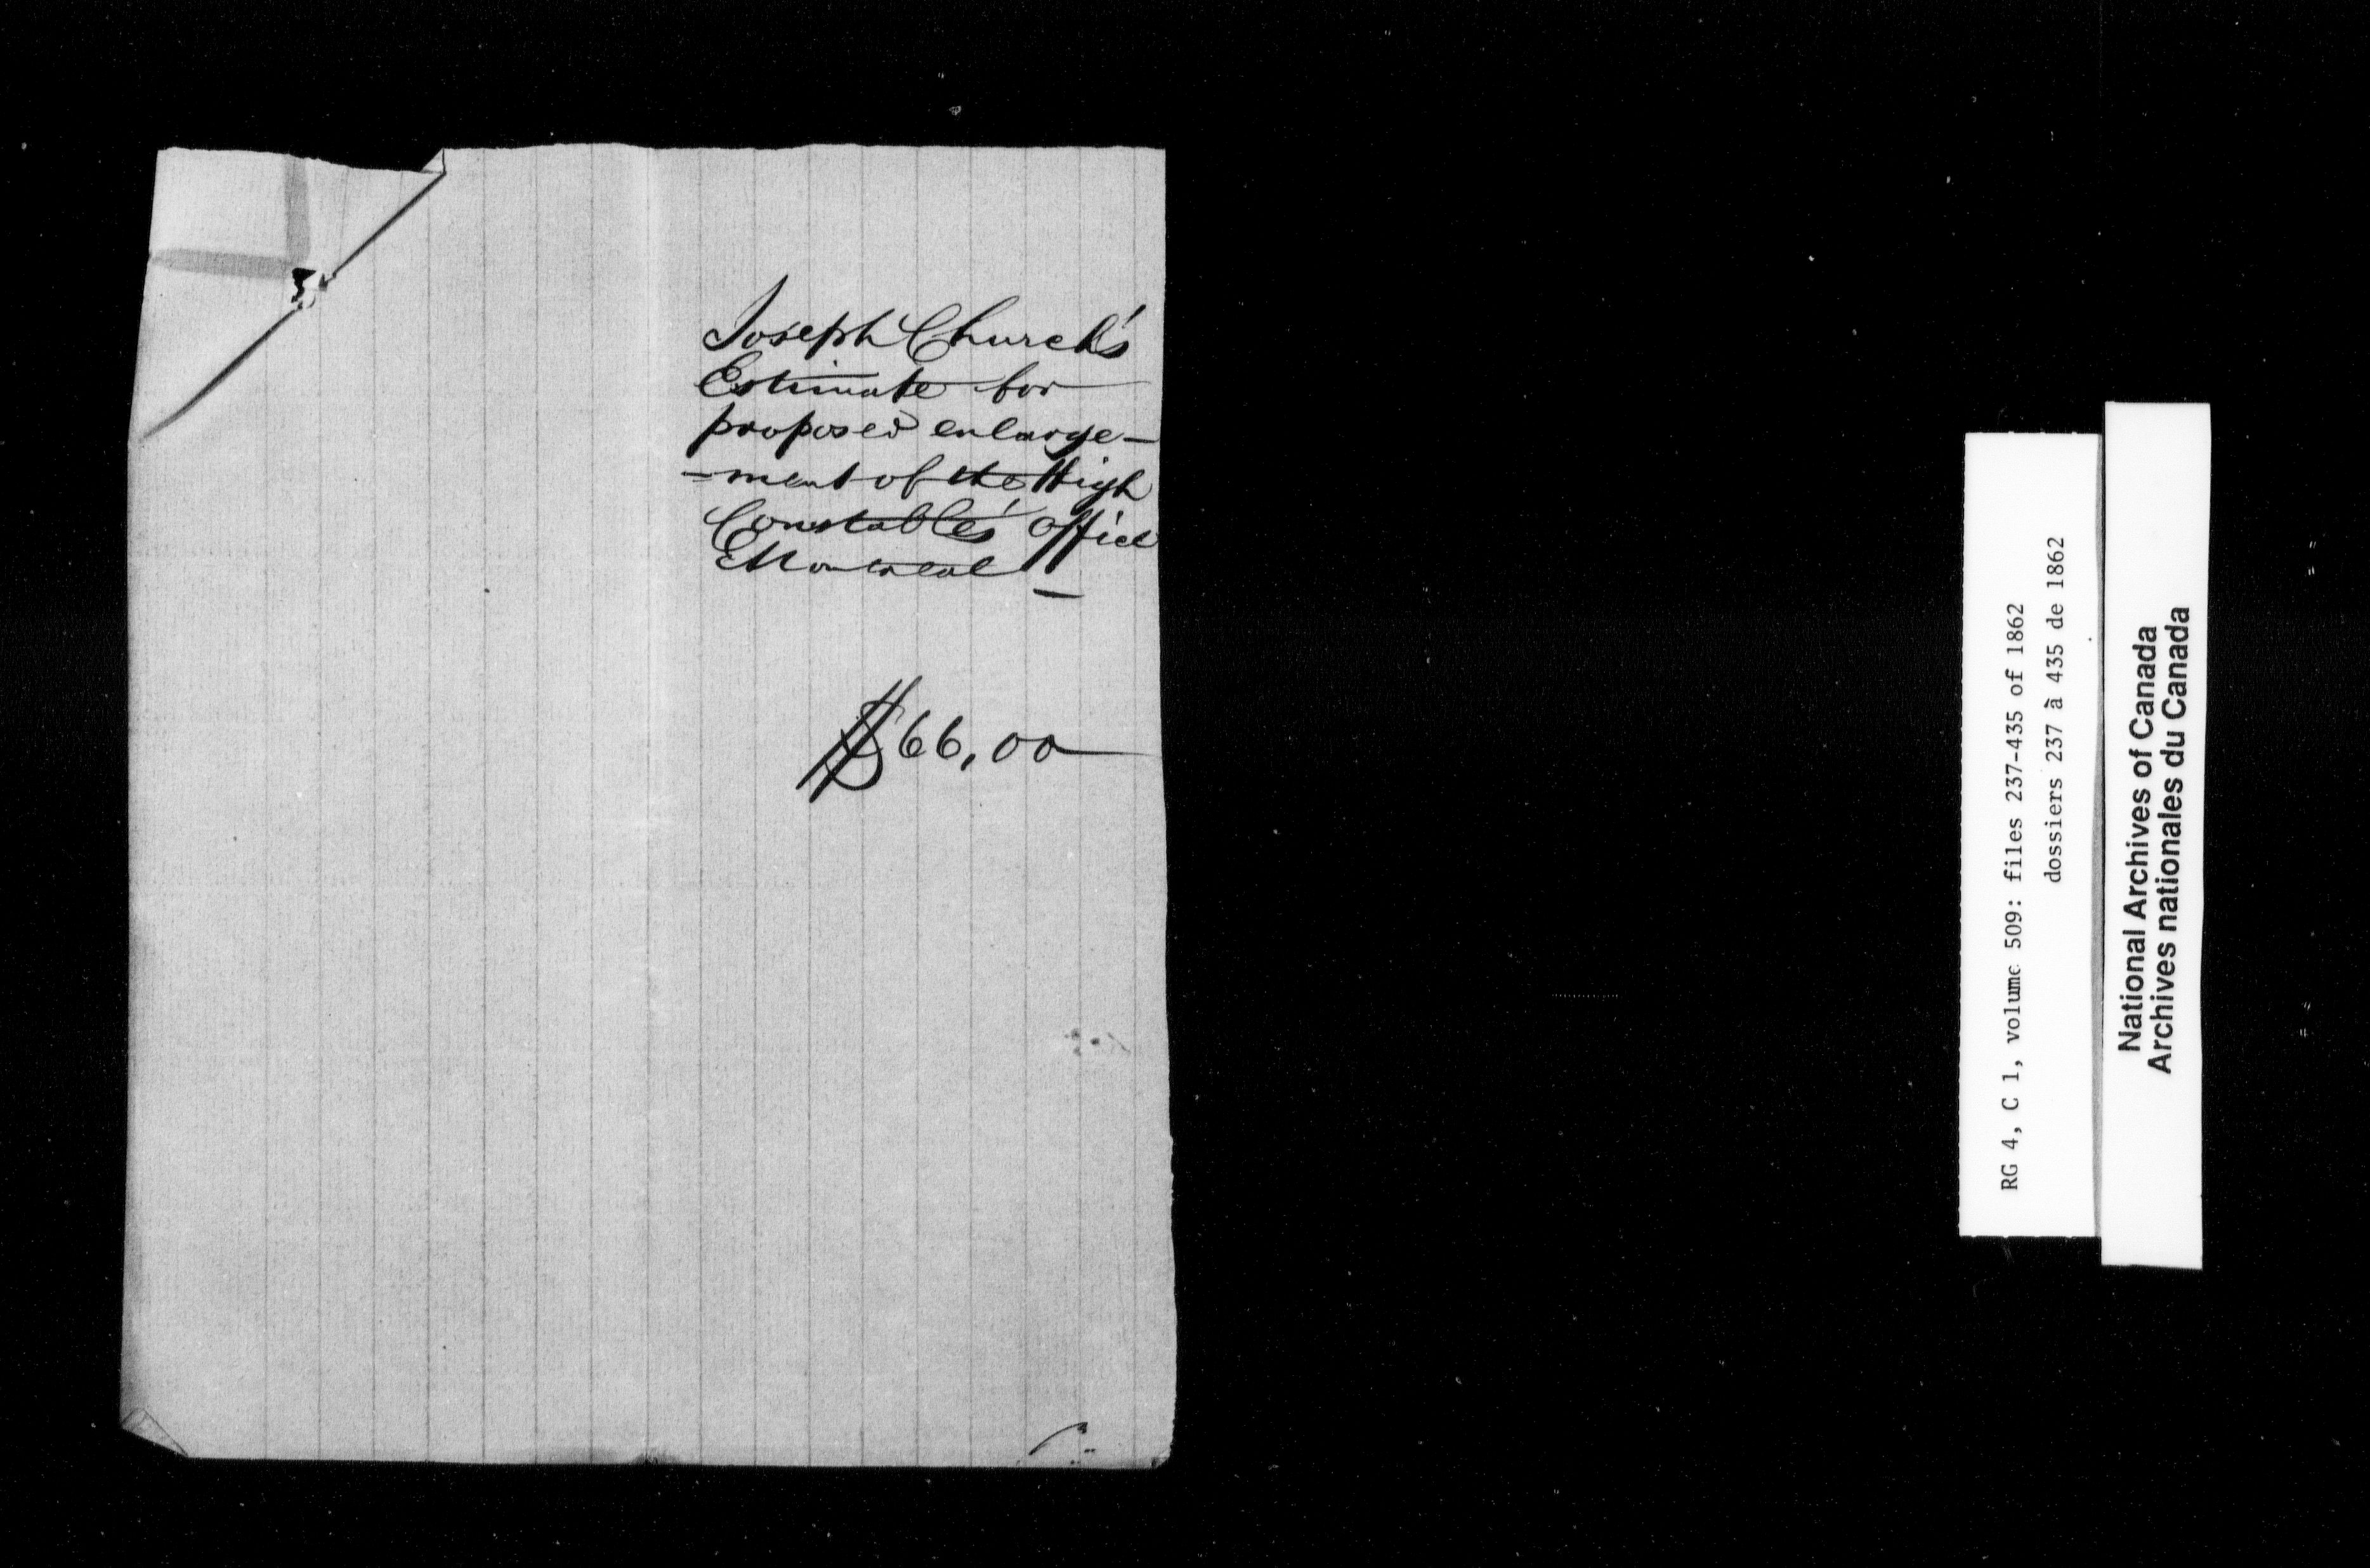 Joseph Church's
Estimate for
proposed enlarge-
-ment of the High
Constable's office
Montreal
$66,00
RG 4, C 1, volume 509: files 237-435 of 1862
dossiers 237 à 435 de 1862
National Archives of Canada
Archives nationales du Canada